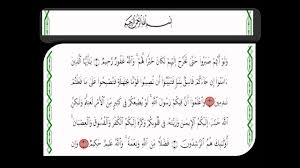 بِسْمِ اللَّهِ الرَّحْمَٰنِ الرَّحِيمِ
وَلَوْ أَنَّهُمْ صَبَرُوا۟ حَتَّىٰ تَخْرُجَ إِلَيْهِمْ لَكَانَ خَيْرًا لَّهُمْ وَٱللَّهُ غَفُورٌ رَّحِيمٌ يَـٰٓأَيُّهَا ٱلَّذِينَ
ءَامَنُوٓا۟ إِن جَآءَكُمْ فَاسِقٌۢ بِنَبَإٍ فَتَبَيَّنُوٓا۟ أَن تُصِيبُوا۟ قَوْمًۢا بِجَهَـٰلَةٍ فَتُصْبِحُوا۟ عَلَىٰ مَا فَعَلْتُمْ
نَـٰدِمِينَ وَٱعْلَمُوٓا۟ أَنَّ فِيكُمْ رَسُولَ ٱللَّهِ لَوْ يُطِيعُكُمْ فِى كَثِيرٍ مِّنَ ٱلْأَمْرِ لَعَنِتُّمْ وَلَـٰكِنَّ
ٱللَّهَ حَبَّبَ إِلَيْكُمُ ٱلْإِيمَـٰنَ وَزَيَّنَهُۥ فِى قُلُوبِكُمْ وَكَرَّهَ إِلَيْكُمُ ٱلْكُفْرَ وَٱلْفُسُوقَ وَٱلْعِصْيَانَ
أُو۟لَـٰٓئِكَ هُمُ ٱلرَّٰشِدُونَ فَضْلًا مِّنَ ٱللَّهِ وَنِعْمَةً وَٱللَّهُ عَلِيمٌ حَكِيمٌ وَإِن